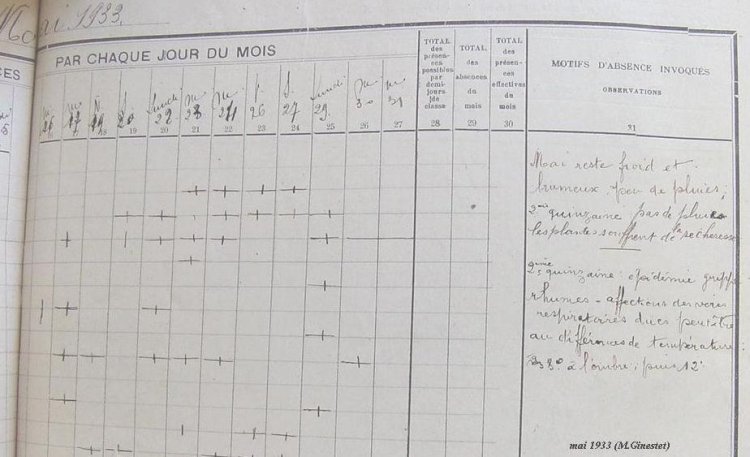 Mai 1933.
CES
PAR CHAQUE JOUR DU MOIS
TOTAL des présences possibles par demi-jours de classe
TOTAL des absences du mois
TOTAL des présences effectives du mois
MOTIFS D'ABSENCE INVOQUÉS
OBSERVATIONS
m. 17
S. 20
Lundi 22
m 23
m. 24
26
S. 27
Lundi 29.
m 30
m 31
18 19 20 21 22 23 24 25 26 27 28 29 30 31
Mai reste froid et
brumeux. Peu de pluies;
2me quinzaine pas de pluie
les plantes souffrent de la sécheresse
2ème quinzaine: épidémie grippe
rhumes - affections des voies
respiratoires dues peut être
au différences de température:
à l'ombre; puis 12°
mai 1933 (M.Ginestet)